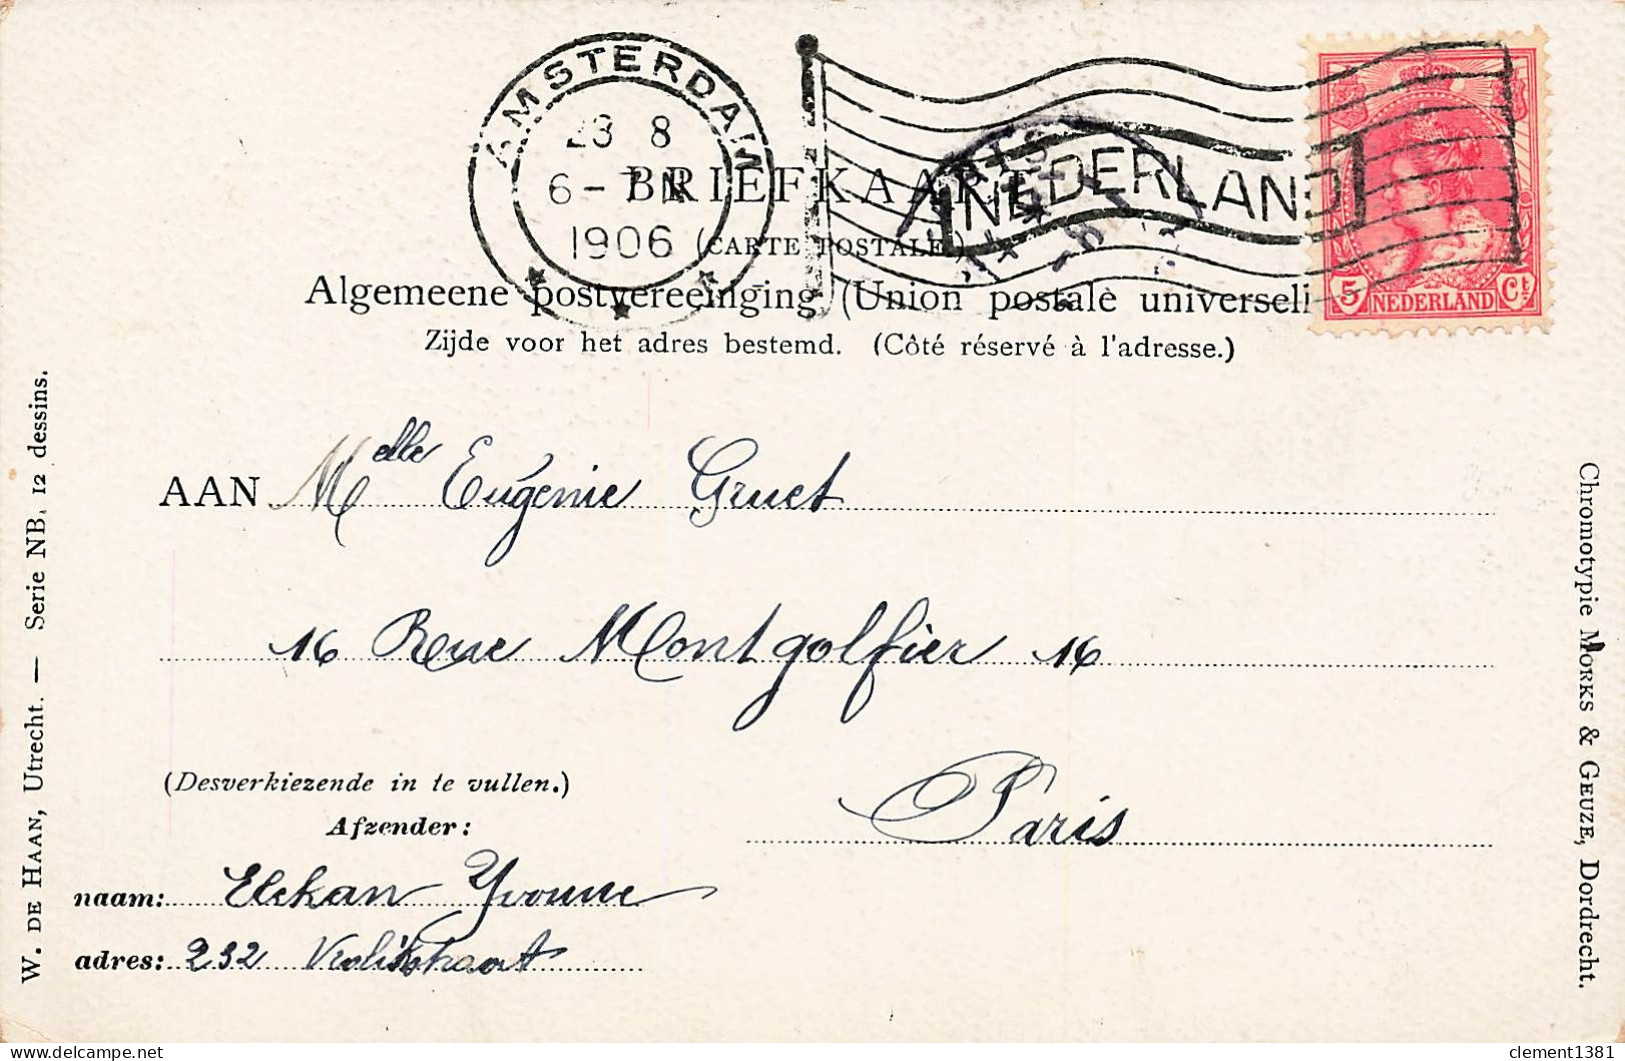 AMSTERDAM
23 8
6-7 N
1906
NEDERLAND
BRIEFKAART
(CARTE POSTALE)
Algemeene postvereeniging (Union postale universell
Zijde voor het adres bestemd. (Côté réservé à l'adresse.)
5 NEDERLAND Ct
AAN Melle Eugénie Gruet
16 Rue Montgolfier 16
Paris
(Desverkiezende in te vullen.)
Afzender:
naam: Elekan Yvonne
adres: 232 Vrolikstraat
W. DE HAAN, Utrecht. — Serie NB, 12 dessins.
Chromotypie MORKS & GEUZE, Dordrecht.
clement1381